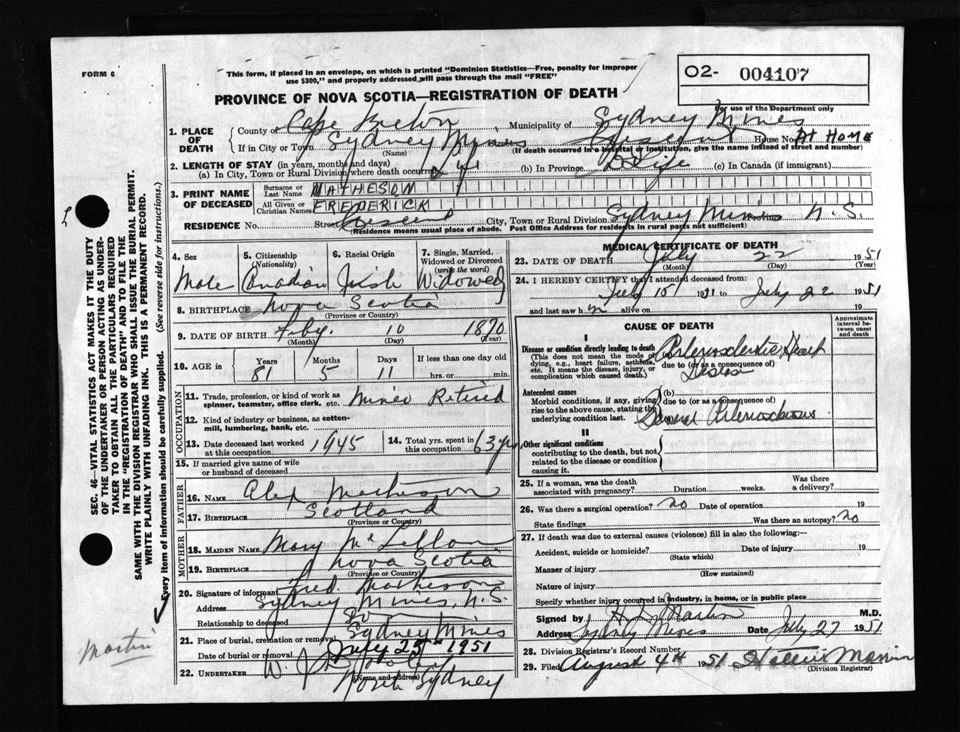 FORM 6
This form, if placed in an envelope, on which is printed "Dominion Statistics—Free, penalty for improper
use $300," and properly addressed will pass through the mail "FREE"
O2- 004107
For use of the Department only
PROVINCE OF NOVA SCOTIA—REGISTRATION OF DEATH
1. PLACE OF DEATH
County of Cape Breton Municipality of Sydney Mines
If in City or Town Sydney Mines House No. AT HOME
(Name) (If death occurred in a hospital or institution, give the name instead of street and number)
2. LENGTH OF STAY (in years, months and days)
(a) In City, Town or Rural Division where death occurred (b) In Province Life (c) In Canada (if immigrant)
3. PRINT NAME OF DECEASED
Surname or Last Name MATHESON
All Given or Christian Names FREDERICK
RESIDENCE No. Street Crescent City, Town or Rural Division Sydney Mines N.S.
(Residence means usual place of abode. Post Office Address for residents in rural parts not sufficient)
4. Sex 5. Citizenship (Nationality) 6. Racial Origin 7. Single, Married, Widowed or Divorced (write the word)
Male Canadian Irish Widowed
8. BIRTHPLACE Nova Scotia
(Province or Country)
9. DATE OF BIRTH Feby. 10 1870
(Month) (Day) (Year)
10. AGE in Years Months Days If less than one day old
81 5 11 hrs. or min.
OCCUPATION
11. Trade, profession, or kind of work as spinner, teamster, office clerk, etc. Miner Retired
12. Kind of industry or business, as cotton-mill, lumbering, bank, etc.
13. Date deceased last worked at this occupation 1945
14. Total yrs. spent in this occupation 63 yrs
15. If married give name of wife or husband of deceased
FATHER
16. NAME Alex Matheson
17. BIRTHPLACE Scotland
(Province or Country)
MOTHER
18. MAIDEN NAME Mary
19. BIRTHPLACE Nova Scotia
(Province or Country)
20. Signature of informant Fred Matheson
Address Sydney Mines, N.S.
Relationship to deceased
21. Place of burial, cremation or removal Sydney Mines
Date of burial or removal July 25th 1951
22. UNDERTAKER W.
(Name and Address)
North Sydney
MEDICAL CERTIFICATE OF DEATH
23. DATE OF DEATH July 22 1951
(Month) (Day) (Year)
24. I HEREBY CERTIFY that I attended deceased from:
July 22 1951
and last saw h alive on 19
CAUSE OF DEATH
Approximate interval between onset and death
I
Disease or condition directly leading to death
(This does not mean the mode of dying, e.g., heart failure, asthenia, etc. It means the disease, injury, or complication which caused death.)
Arteriosclerotic Heart
due to (or as a consequence of)
Disease
Antecedent causes
Morbid conditions, if any, giving rise to the above cause, stating the underlying condition last.
(b)
due to (or as a consequence of)
General Arteriosclerosis
II
Other significant conditions
contributing to the death, but not related to the disease or condition causing it.
25. If a woman, was the death associated with pregnancy? Duration weeks. Was there a delivery?
26. Was there a surgical operation? no Date of operation 19
State findings Was there an autopsy? No
27. If death was due to external causes (violence) fill in also the following:—
Accident, suicide or homicide? Date of injury 19
(State which)
Manner of injury
(How sustained)
Nature of injury
Specify whether injury occurred in industry, in home, or in public place
Signed by Martin M.D.
Address Sydney Mines Date July 27 1951
28. Division Registrar's Record Number
29. Filed August 4th 1951
(Division Registrar)
SEC. 46—VITAL STATISTICS ACT MAKES IT THE DUTY
OF THE UNDERTAKER OR PERSON ACTING AS UNDER-
TAKER TO OBTAIN ALL THE PARTICULARS REQUIRED
IN THE "REGISTRATION OF DEATH" AND TO FILE THE
SAME WITH THE DIVISION REGISTRAR WHO SHALL ISSUE THE BURIAL PERMIT.
WRITE PLAINLY WITH UNFADING INK. THIS IS A PERMANENT RECORD.
Every item of information should be carefully supplied. (See reverse side for instructions.)
Martin